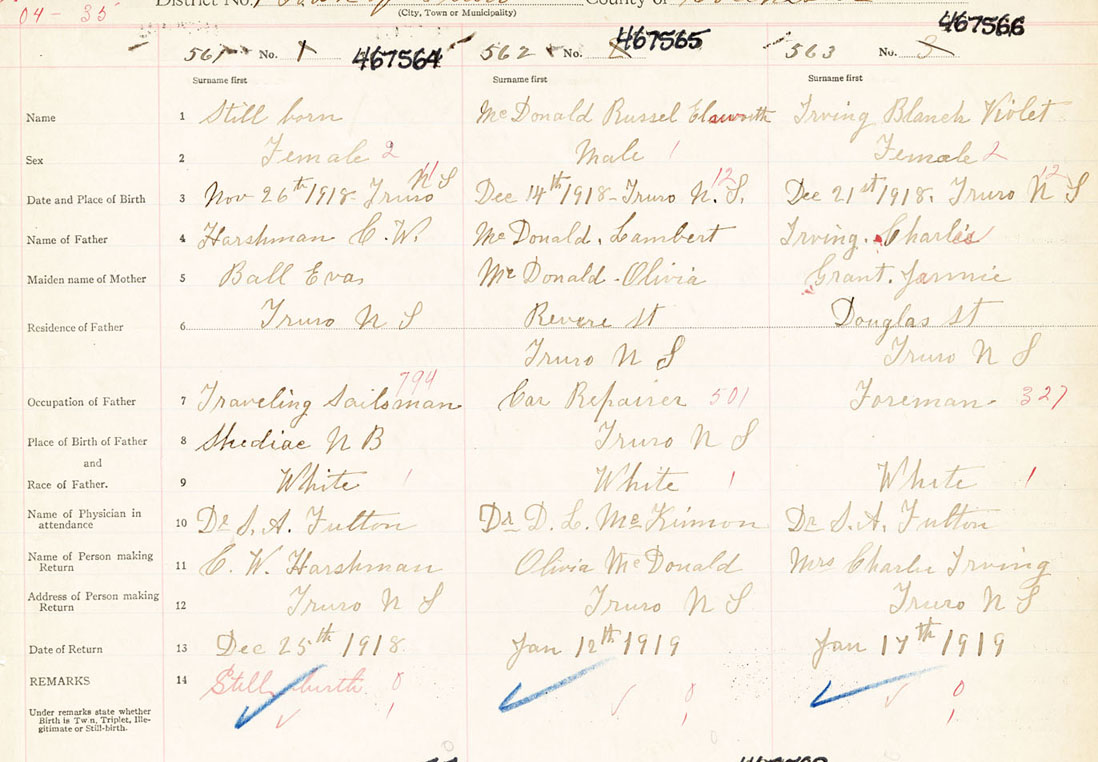 04 - 35 District No. 1 Town of Truro County of
(City, Town or Municipality)
561 No. 1 467564 562 No. 2 467565 563 No. 3 467566
Surname first Surname first Surname first
Name 1 Still born McDonald Russel Elsworth Irving Blanch Violet
Sex 2 Female 2 Male 1 Female 2
Date and Place of Birth 3 Nov 26th 1918 - Truro N S 11 Dec 14th 1918 - Truro N. S. 12 Dec 21st 1918. Truro N S 12
Name of Father 4 Harshman C. W. McDonald. Lambert Irving. Charlis
Maiden name of Mother 5 Ball Eva McDonald - Olivia Grant. Jannie
Residence of Father 6 Truro N S Revere St Douglas St
Truro N S Truro N S
Occupation of Father 7 Traveling Sailsman 794 Car Repairer 501 Foreman - 327
Place of Birth of Father 8 Shediac N B Truro N S
and
Race of Father. 9 White 1 White 1 White 1
Name of Physician in attendance 10 Dr S. A. Fulton Dr D. L. McKinnon Dr S. A. Fulton
Name of Person making Return 11 C. W. Harshman Olivia McDonald Mrs Charlie Irving
Address of Person making Return 12 Truro N S Truro N S Truro N S
Date of Return 13 Dec 25th 1918 Jan 12th 1919 Jan 17th 1919
REMARKS 14 Still birth 0 0 0
Under remarks state whether Birth is Twin, Triplet, Ille-
gitimate or Still-birth. 1 1 1